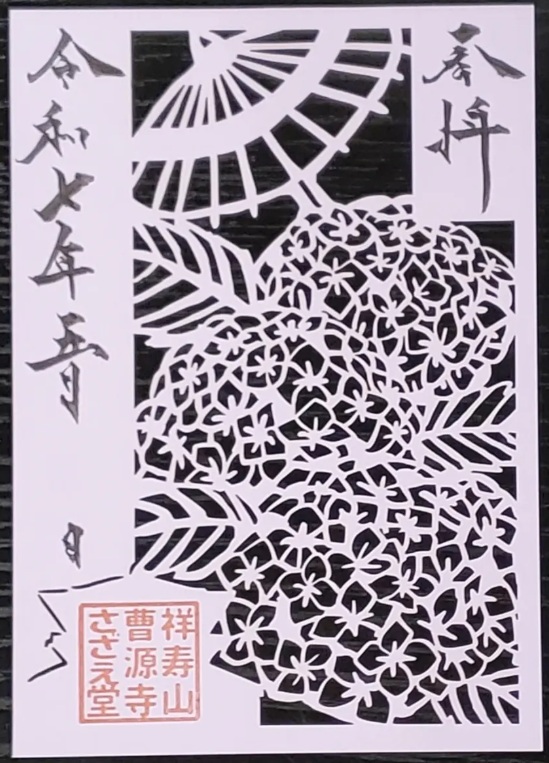 奉拝
令和七年五月 日
祥寿山
曹源寺
さざえ堂